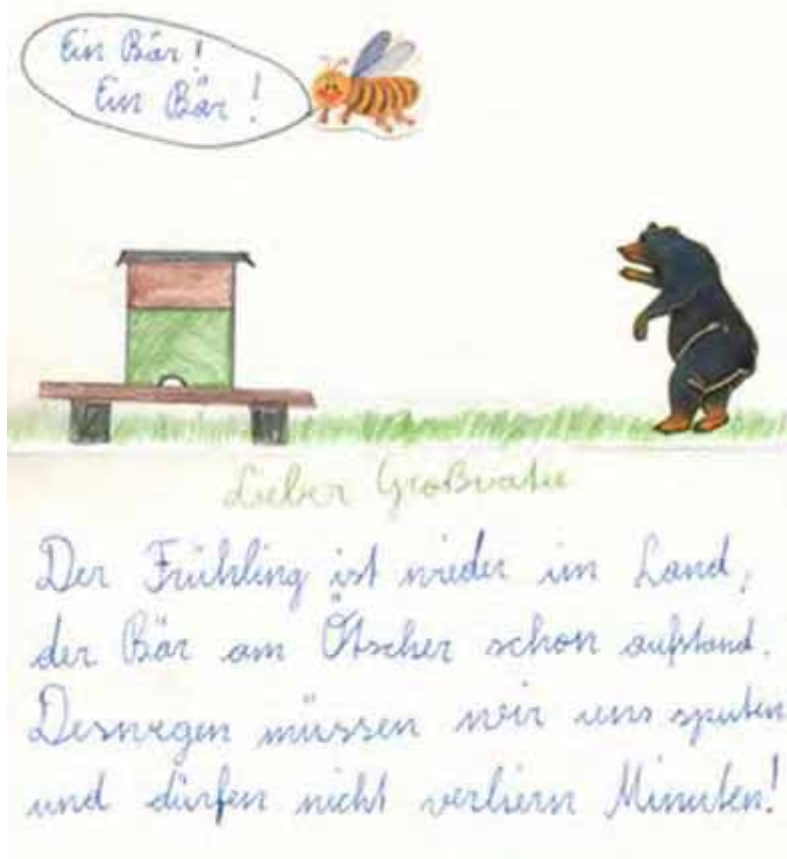 Ein Bär!
Ein Bär!
Lieber Großvater
Der Frühling ist wieder im Land,
der Bär am Ötscher schon aufstand.
Deswegen müssen wir uns sputen
und dürfen nicht verliern Minuten!